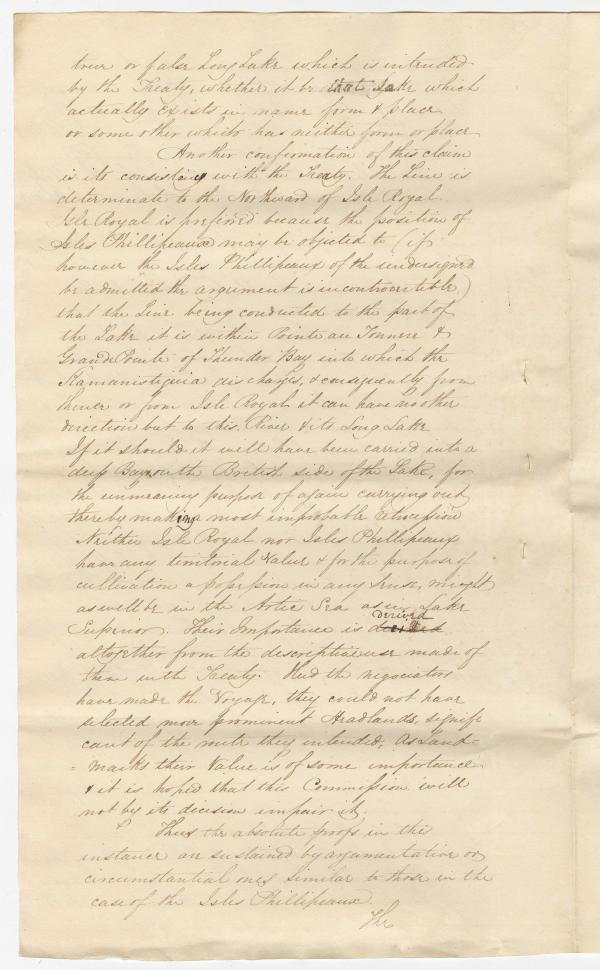 true or false Long Lake which is intended
by the Treaty, whether it be that Lake which
actually exists in name form & place
or some other which has neither form or place
Another confirmation of this claim
is its consistency with the Treaty. The Line is
determinate to the Northward of Isle Royal
Isle Royal is preferred because the position of
Isles Phillipeaux may be objected to (if
however the Isles Phillipeaux of the undersigned
be admitted the argument is incontrovertible)
that the Line being conducted to the part of
the Lake it is within Pointe au Tonnere &
Grande Pointe of Thunder Bay into which the
Kamanistiquia discharges, & consequently from
thence or from Isle Royal it can have no other
direction but to this River & its Long Lake
If it should it will have been carried into a
deep Bay on the British side of the Lake, for
the unmeaning purpose of again carrying out
thereby making a most improbable retrocession
Neither Isle Royal nor Isles Phillipeaux
have any territorial Value & for the purpose of
cultivation or possession in any sense, might
as well be in the Artic Sea as in Lake
Superior. Their Importance is derived
altogether from the descriptive use made of
them in the Treaty. Had the negociators
have made the Voyage, they could not have
selected more prominent Headlands, signifi
cant of the route they intended; As Land-
=marks their Value is of some importance
& it is hoped that this Commission will
not by its decision impair it.
Thus the absolute proofs in this
instance are sustained by argumentative or
circumstantial ones similar to those in the
case of the Isles Phillipeaux.
The